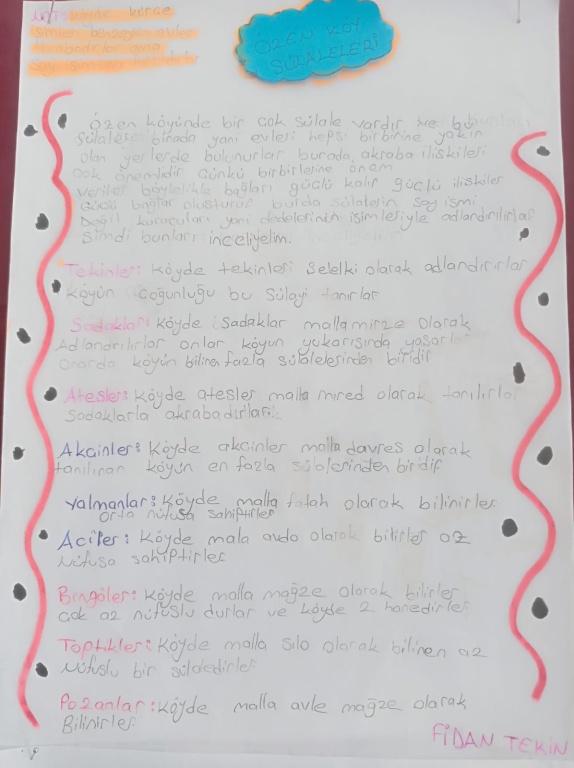 köyde kürce
isimleri benzeyen evler
akrabadırlar ama
soy isimleri farklıdır
ÖZEN KÖY
SÜLALELERİ
Özen köyünde bir çok sülale vardır ve bu
Sülalese binada yani evleri hepsi birbirine yakın
olan yerlerde bulunurlar burada akraba ilişkileri
çok önemlidir Çünkü birbirlerine önem
verirler böylelikle bağları güçlü kalır güçlü ilişkiler
Güçlü bağlar oluşturur burda sülalelerin soy ismi
Değil kurucuları yani dedelerinin isimleriyle adlandırılırlar
Şimdi bunları inceliyelim.
Tekinler: Köyde tekinleri Selelki olarak adlandırırlar
Köyün çoğunluğu bu Sülayi tanırlar
Sadaklar: Köyde Sadaklar mallamirze olarak
Adlandırılırlar onlar köyün yukarısında yaşarlar
Onarda köyün bilinen fazla sülalelerinden biridir
Ateşler: Köyde ateşler malla mired olarak tanılırlar
Sadaklarla akrabadırlar.
Akcinler: Köyde akcinler malla davres olarak
tanılınan köyün en fazla sülalerinden biridir
Yalmanlar: Köyde malla fatah olarak bilinirler
Orta nüfusa sahiptirler
Aciler: Köyde mala avdo olarak bilirler az
Nüfusa sahiptirler
Bingöler: Köyde malla mağze olarak bilirler
çok az nüfuslu durlar ve köyde 2 hanedirler
Toptikler: Köyde malla silo olarak bilinen az
Nüfuslu bir sülaledirler
Pozanlar: Köyde malla avle mağze olarak
Bilinirler
FİDAN TEKİN